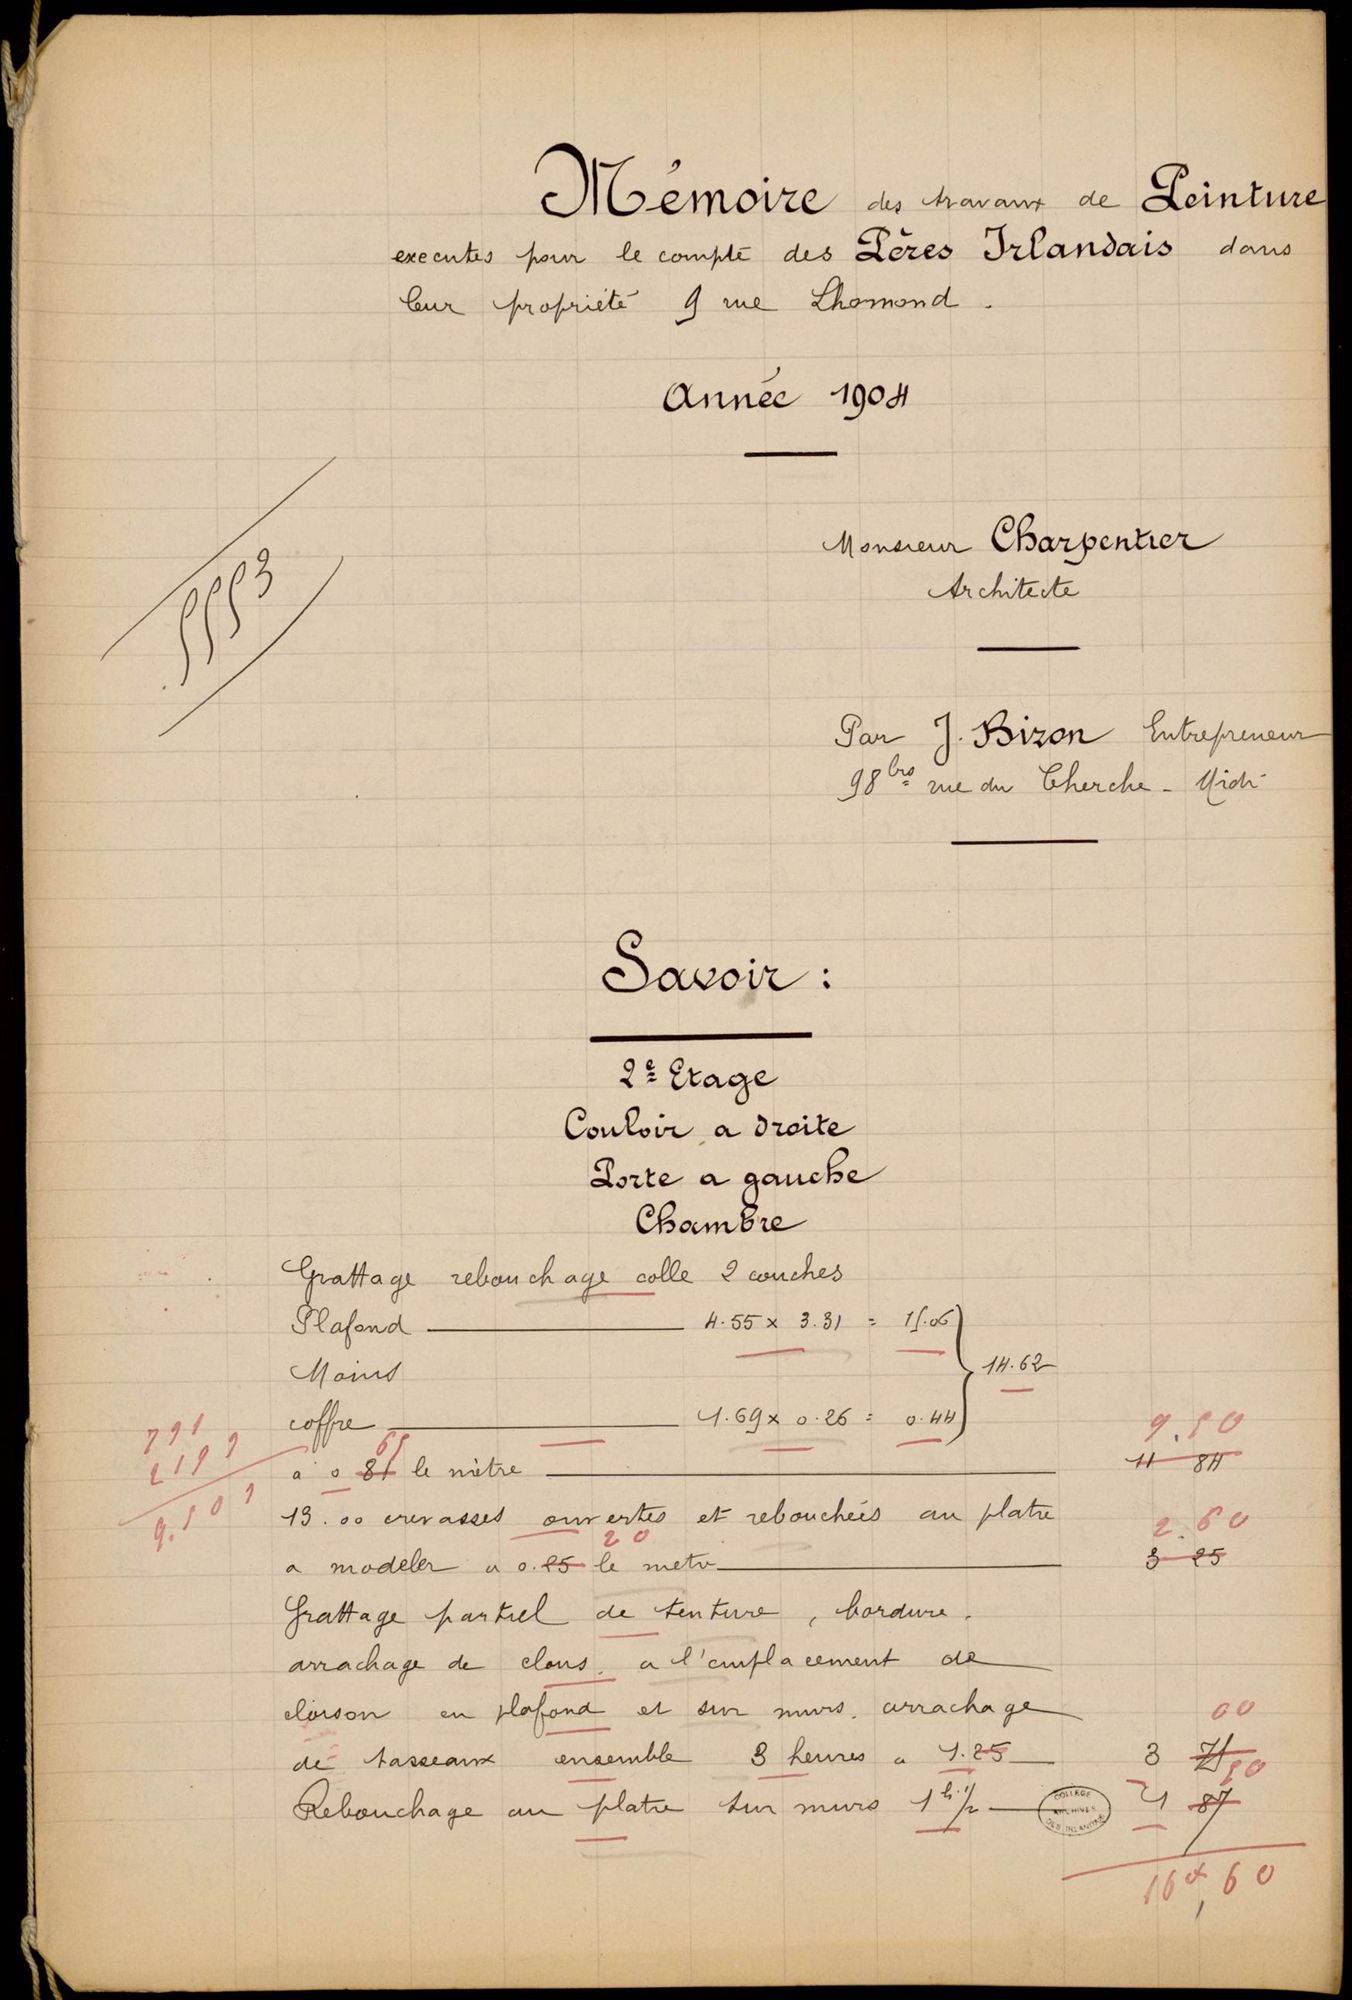 Mémoire des travaux de Peinture
executés pour le compte des Pères Irlandais dans
leur propriété 9 rue Lhomond.
Année 1904
Monsieur Charpentier
Architecte
5553
Par J. Bizon Entrepreneur
98 bis rue du Cherche-Midi
Savoir :
2e Etage
Couloir a droite
Porte a gauche
Chambre
Grattage rebouchage colle 2 couches
Plafond 4.55 x 3.31 = 15.06
14.62
Moins
coffre 1.69 x 0.26 = 0.44
9.50
65
a 0 81 le mètre 11 84
9.503
13.00 crevasses ouvertes et rebouchées au platre
2.60
20
a modeler a 0.25 le metre 3 25
Grattage partiel de tenture, bordure,
arrachage de clous, a l'emplacement de
cloison en plafond et sur murs, arrachage
00
de tasseaux ensemble 3 heures a 1.25 3 75
Rebouchage au platre sur murs 1h 1/2 1 87
COLLEGE DES IRLANDAIS
ARCHIVES
16,60